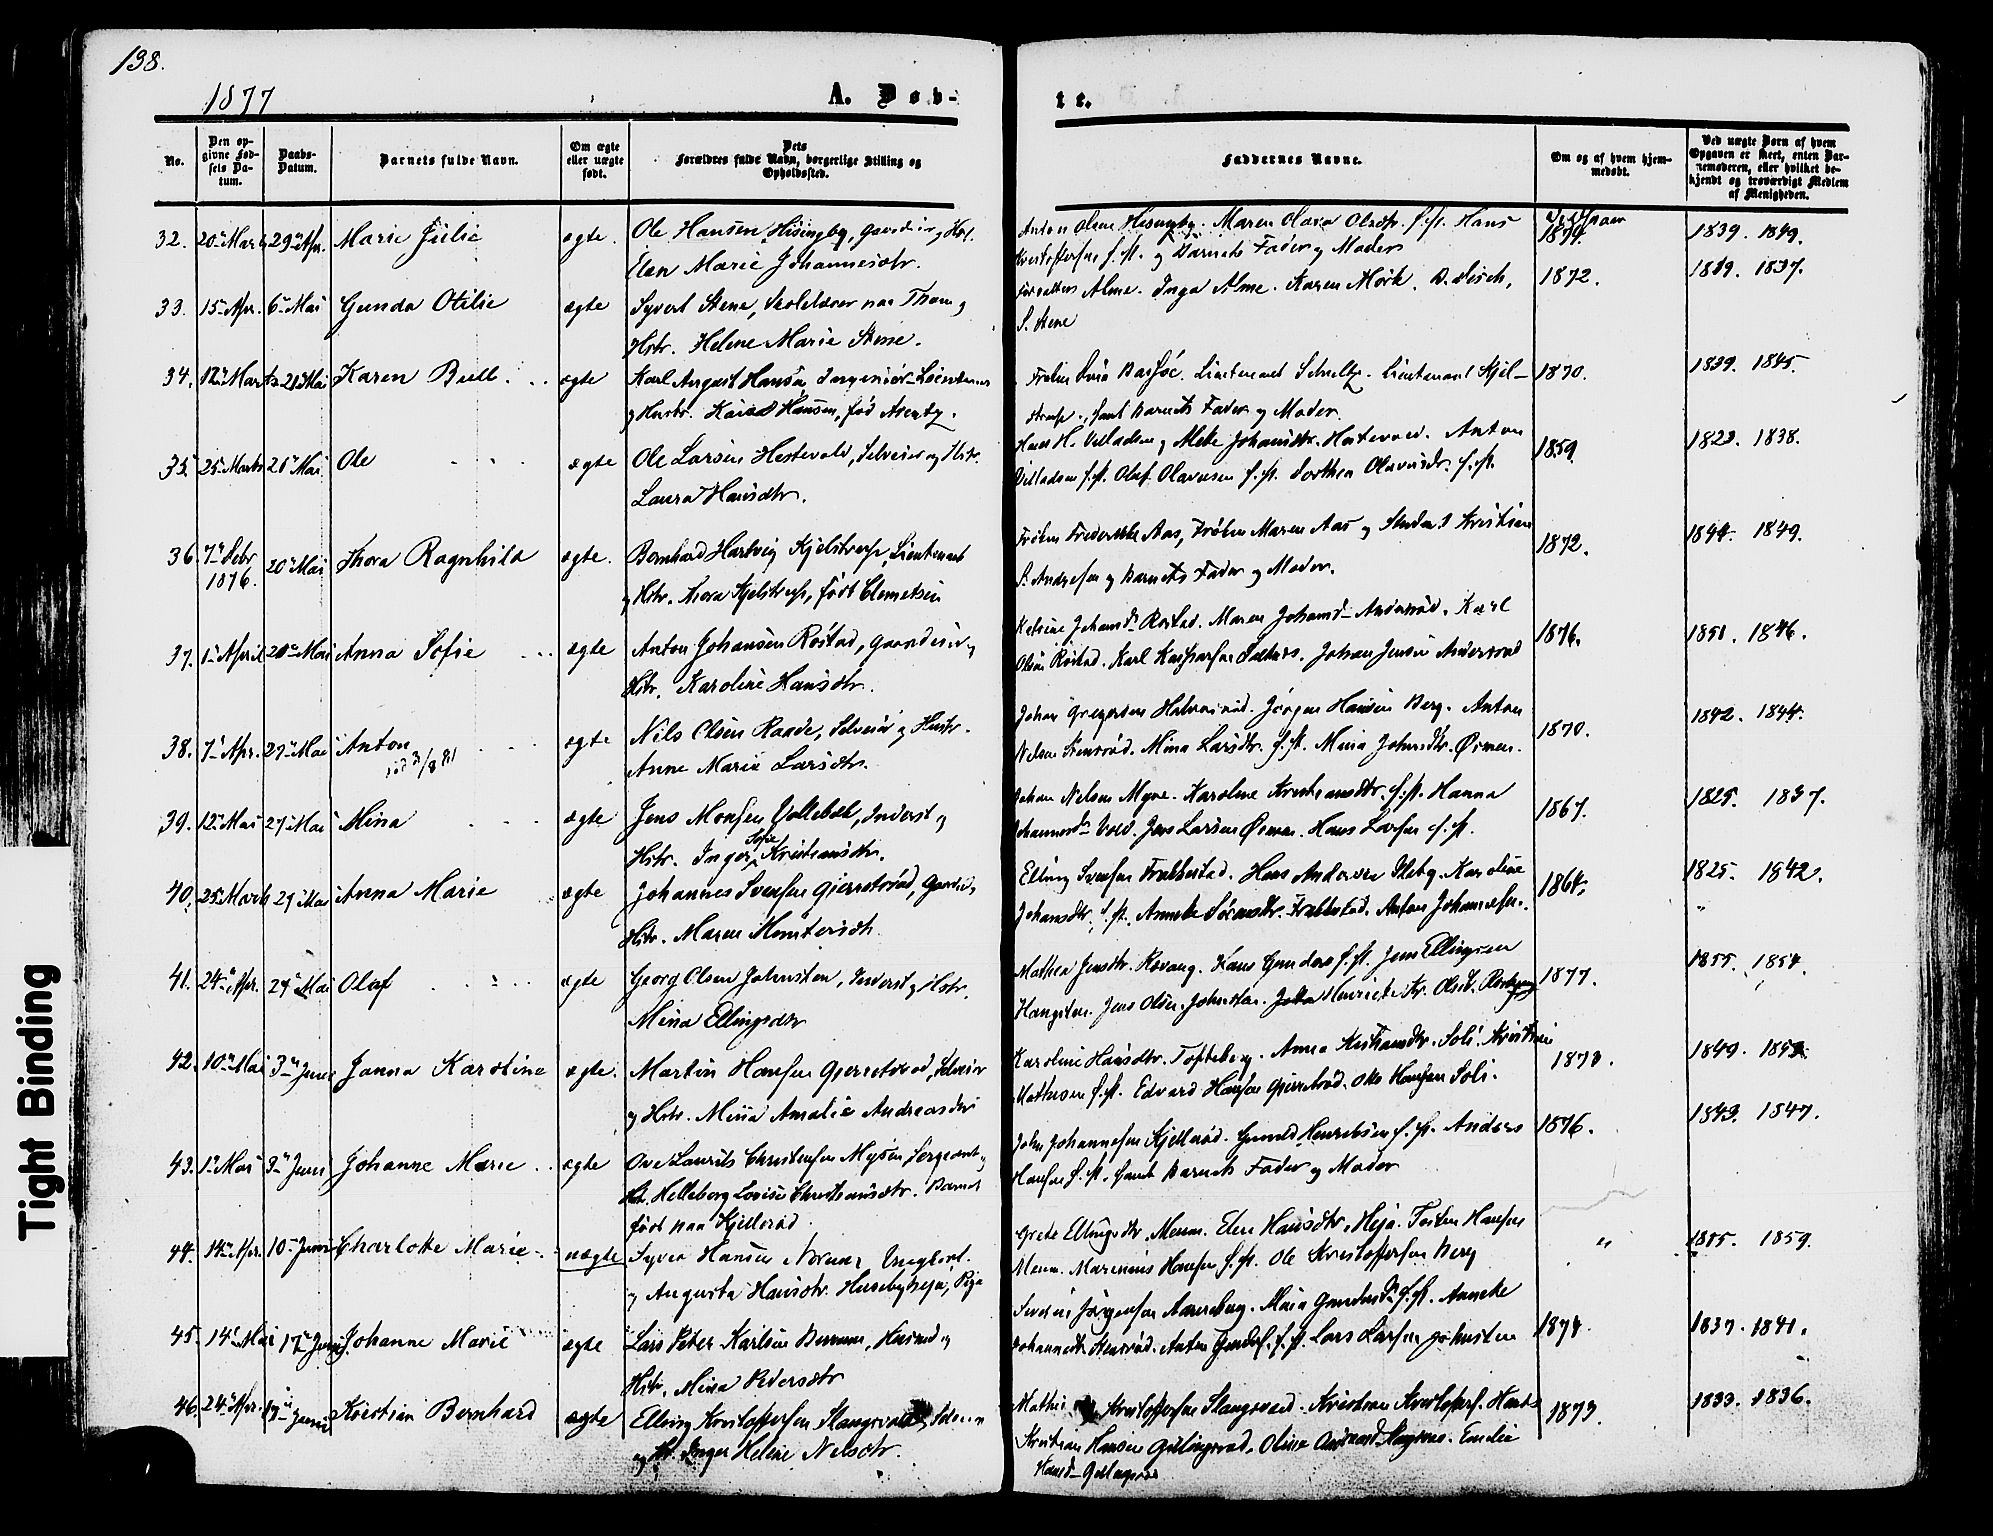 138.
1877
A. Døb-
te.
No.
Den op-
givne Fød-
sels Da-
tum.
Daabs-
Datum.
Barnets fulde Navn.
Om ægte
eller uægte
født.
Dets
Forældres fulde Navn, borgerlige Stilling og
Opholdssted.
Faddernes Navne.
Om og af hvem hjem-
medøbt.
Ved uægte Børn af hvem
Opgaven er skeet, enten Bar-
nemoderen, eller hvilket be-
kjendt og troværdigt Medlem
af Menigheden.
32. 20de Marts 29de Apr. Marie Julie ægte. Ole Hansen Hisingby, Gaardeier og Hst.
Elen Marie Johannesdtr.
Anton Olsen Hisingby. Maren Olava Olsdtr. s.st. Hans
Kristoffersen s.st. og Barnets Fader og Moder
1874. 1839. 1849.
33. 15de Apr. 6te Mai Gunda Otilie ægte Syvert Stene, Skolelærer paa Thom og
Hstr. Helene Marie Stene.
Alme. Inga Alme. Karen Mørk.
S. Stene
1872. 1839. 1837.
34. 12te Marts 21de Mai Karen Bull ægte Karl August Hansen, Ingeniør-Lieutenant
og Hustr. Hansen, født
Frøken Barfoe. Lieutenant Schultz. Lieutenant Kjel-
strup, samt Barnets Fader og Moder.
1870. 1839. 1845.
35. 25de Marts 21de Mai Ole ægte Ole Larsen Hestevold, Selveier og Hstr.
Laura Hansdtr.
Hans H. Villadsen og Mete Johansdtr. Hestevold. Anton
Villadsen s.st. Olaf Olavesen s.st. Dorthea Olavesdtr. s.st.
1859. 1823. 1838.
36. 7de Febr 1876. 20de Mai Thora Ragnhild ægte. Bernhard Hartvig Kjelstrup, Lieutenant
og Hstr. Thora Kjelstrup, født Clemetsen
Frøken Frederikke Aas, Frøken Maren Aas og Student Kristian
S. Andresen og Barnets Fader og Moder.
1872. 1844. 1849.
37. 1de April 20de Mai Anna Sofie ægte Anton Johansen Røstad, Gaardeier og
Hstr. Karoline Hansdtr.
Johansd. Røstad. Maren Johansd. Andersrød. Karl
Olsen Røstad. Karl Kasparsen Johan Jensen Andersrød
1876. 1851. 1846.
38. 7de Apr. 27de Mai Anton ægte Nils Olsen Raade, Selveier og Hustr.
død 31/8 81
Anne Marie Larsdtr.
Johan Gregersen Jørgen Hansen Berg. Anton
Nelsen Stensrød. Mina Larsdtr. s.st. Mina Johnsdtr. Ørmen.
1870. 1842. 1844.
39. 12te Mai 27de Mai Mina ægte Jens Monsen Inderst og
Hstr. Inger Sofie Kristiansdtr.
Johan Nelsen Myre. Karoline Kristiansdtr. s.st. Hanna
Johannesdtr Vold. Jens Larsen Ørmen. Hans Larsen s.st.
1867. 1825. 1837.
40. 25de Marts 29de Mai Anna Marie ægte Johannes Svensen Gjerretsrød, Gaardeier og
Hstr. Maren
Elling Svensen Frebbestad. Hans Andersen Karoline
Johansdtr. s.st. Annette Sørensdtr. Frebbestad. Anton Johannesen.
1864. 1825. 1842.
41. 24de Apr. 29de Mai Olaf ægte Georg Olsen Johnsten, Inderst og Hstr.
Mina Ellingsdtr
Mathea Jensdtr. Hans Gundersen s.st. Jens Ellingsen
Hangsten. Jens Olsen Johnsten.
1877. 1855. 1854.
42. 10de Mai 3de Juni Janna Karstine ægte. Martin Hansen Gjerretsrød, Selveier
og Hstr. Mina Amalie Andreasdtr
Karoline Hansdtr. Tofteberg. Anna Kristiansdtr. Soli. Kristian
Mathisen s.st. Edvard Hansen Gjerretsrød. Otto Hansen Soli.
1873. 1849.
43. 1de Mai 3de Juni Johanne Marie ægte Ove Laurits Christensen Mysen Sergeant og
Hstr. Helleborg Lovise Christiansdtr. Barnet
født paa Kjellerød.
John Johannesen Kjellerød. Gunild Henriksen s.st. Anders
Hansen s.st. samt Barnets Fader og Moder
1876. 1843. 1847.
44. 14de Apr. 10de Juni Charlotte Marie uægte Syver Hansen Ungkarl.
og Augusta Hansdtr. Husebyhejen, Pige
Grete Ellingsdtr. Menn. Elen Hansdtr. Heja. Torsten Hansen
Menn. Marenius Hansen s.st. Ole Kristoffersen Berg
" 1855. 1859.
45. 14de Mai 17de Juni Johanne Marie ægte Lars Peter Karlsen Husmd. og
Hstr. Mina Pedersdtr
Jørgensen Maria Gundersd. s.st. Annette
Johannesdtr. Stensrød. Anton Gunders. s.st. Lars Larsen Johnsten
1874. 1837. 1841.
46. 24de Apr. 17de Juni Kristian Bernhard ægte Elling Kristoffersen Slangsvold, Selveier
og Hst. Inger Helene Nelsdtr.
Kristoffersen Slangsvold. Kristian Kristoffers.
Kristian Hansen Gillingsrød. Oline Emelie
Hansd. Gillingsrød
1873. 1833. 1836.
Tight Binding